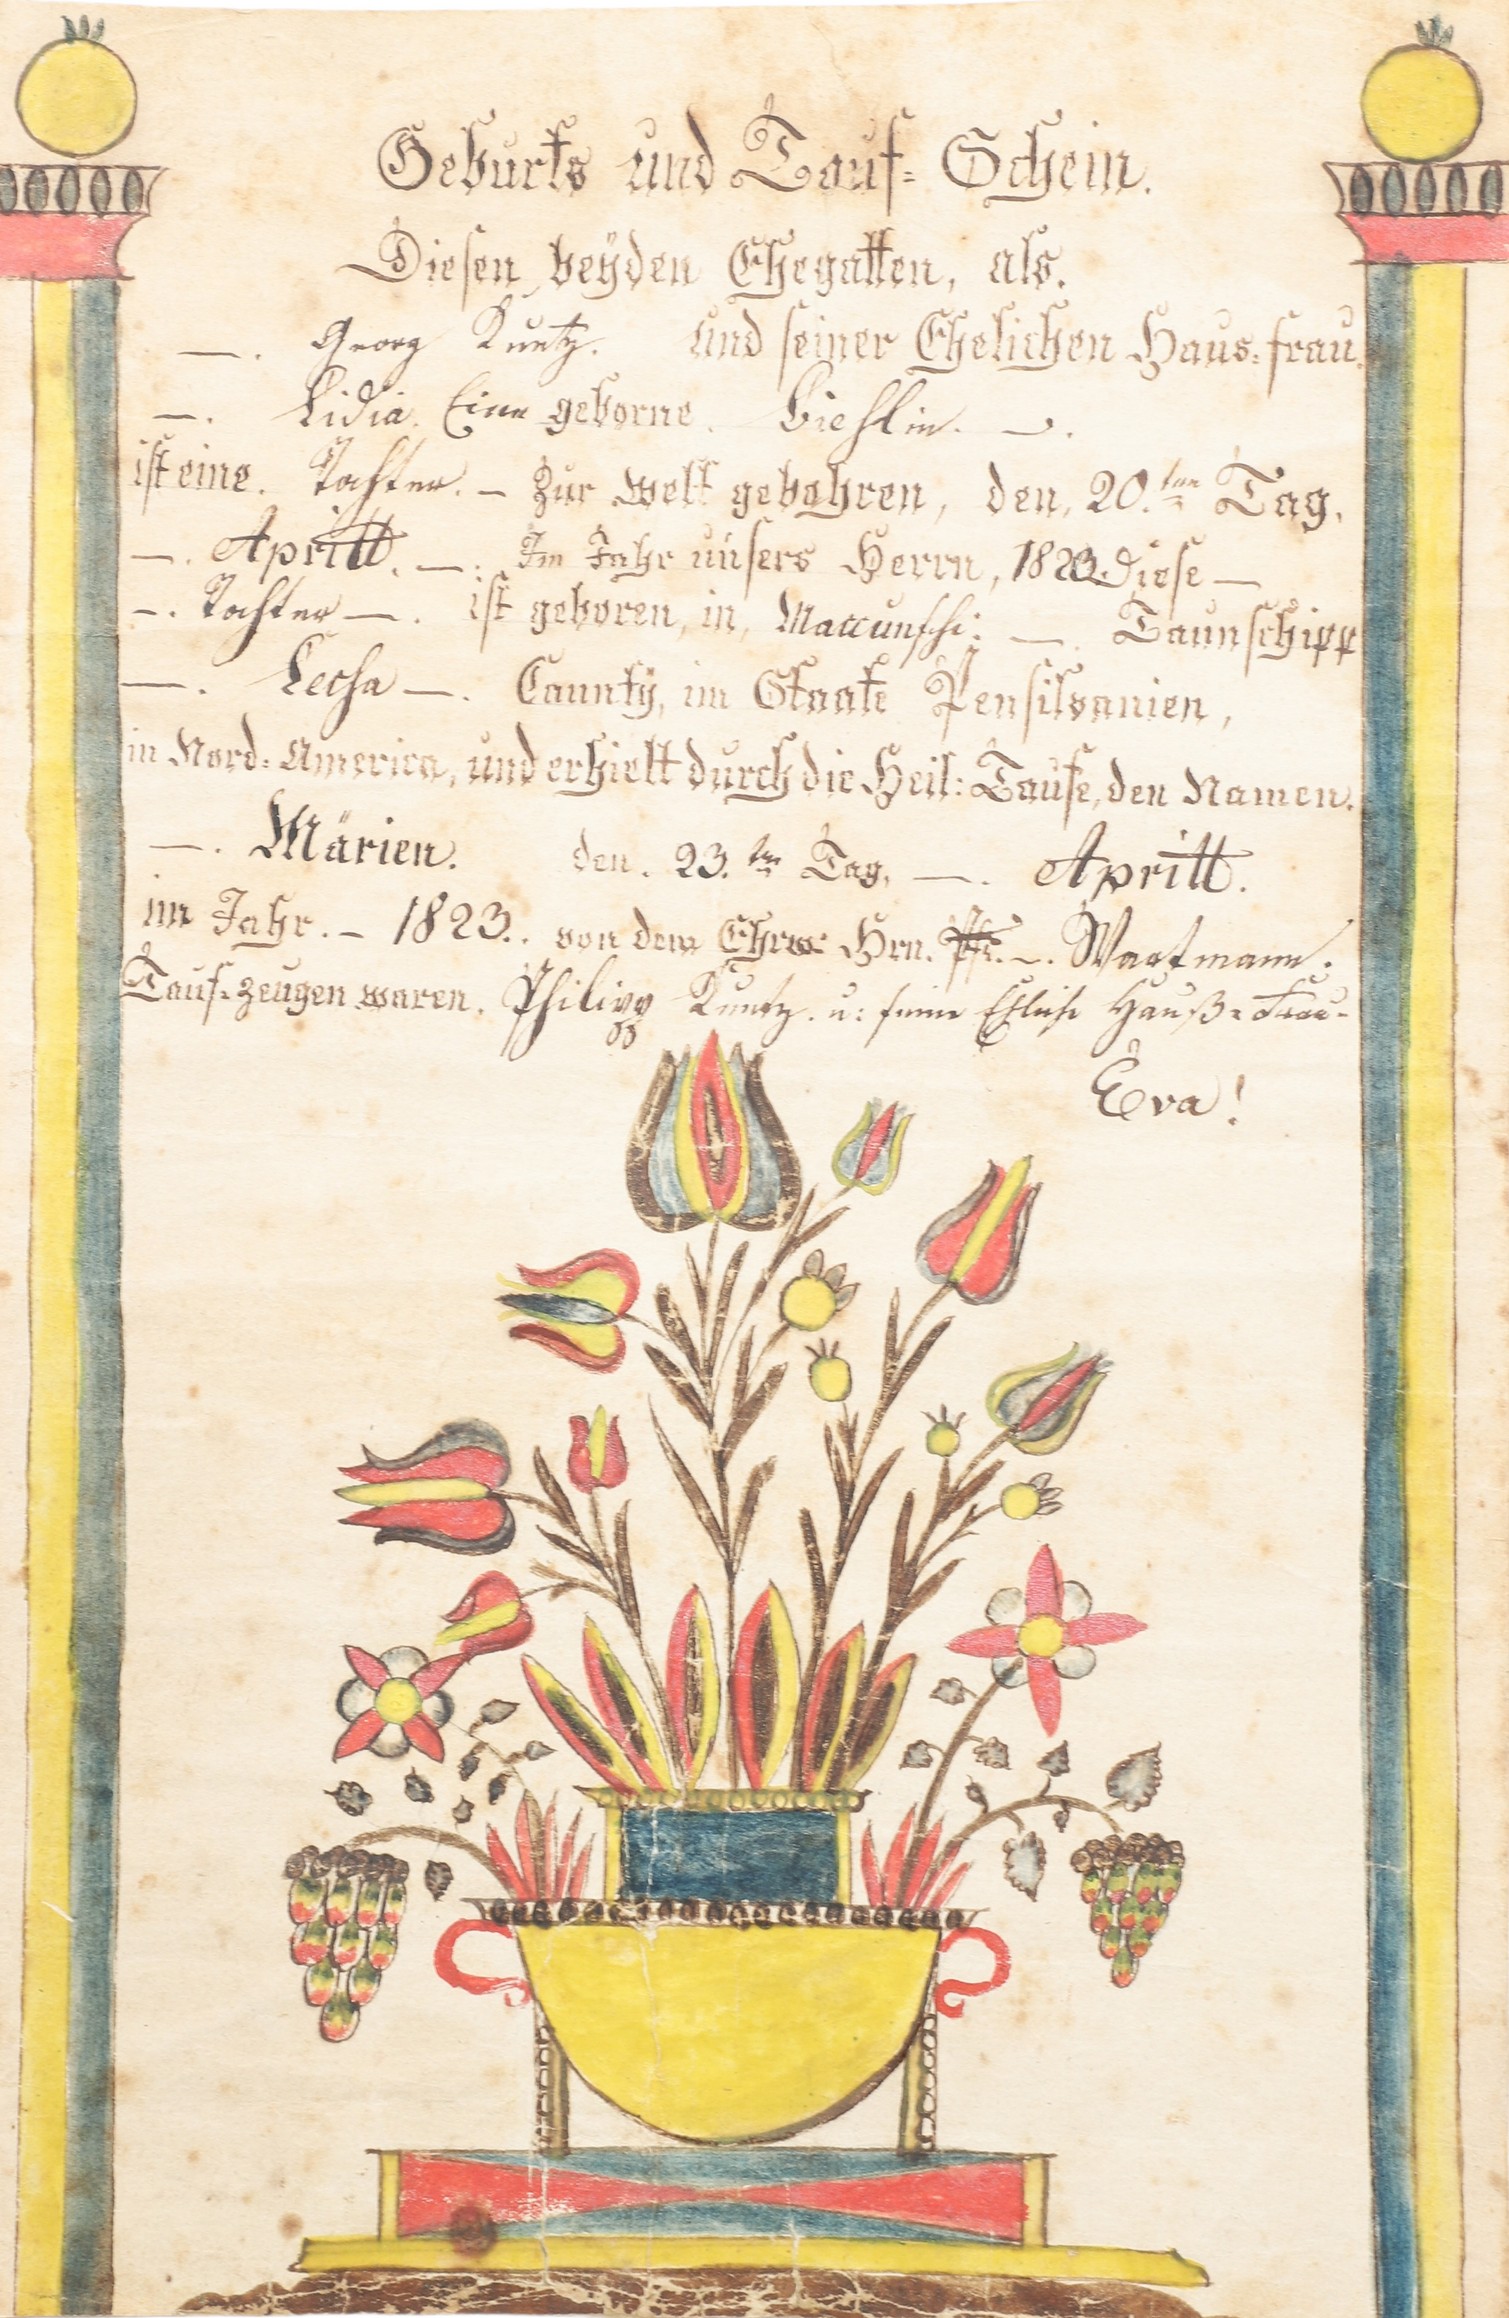 Geburts und Tauf= Schein.
Diesen beÿden Ehegatten, als.
—. Georg Kuntz. und seiner Ehelichen Haus=frau.
—. Lidia. Eine geborne. Biehlin. —.
ist eine. Tochter. — zur welt gebohren, den, 20.ten Tag,
—. Aprill. —. Im Jahr unsers Herrn, 1823. Diese —
—. Tochter —. ist geboren, in, Maccunschi: —. Taunschipp
—. Lecha —. Caunty, im Staate Pensilvanien,
in Nord=America, und erhielt durch die Heil: Taufe, den Namen.
—. Märien. den. 23.ten Tag, —. Aprill.
im Jahr. — 1823.. von dem Ehrw: Hrn. Pfr. —. Wartmann.
Tauf=zeugen waren. Philipp Kuntz. u: seine Ehliche Hauß=Frau-
Eva!